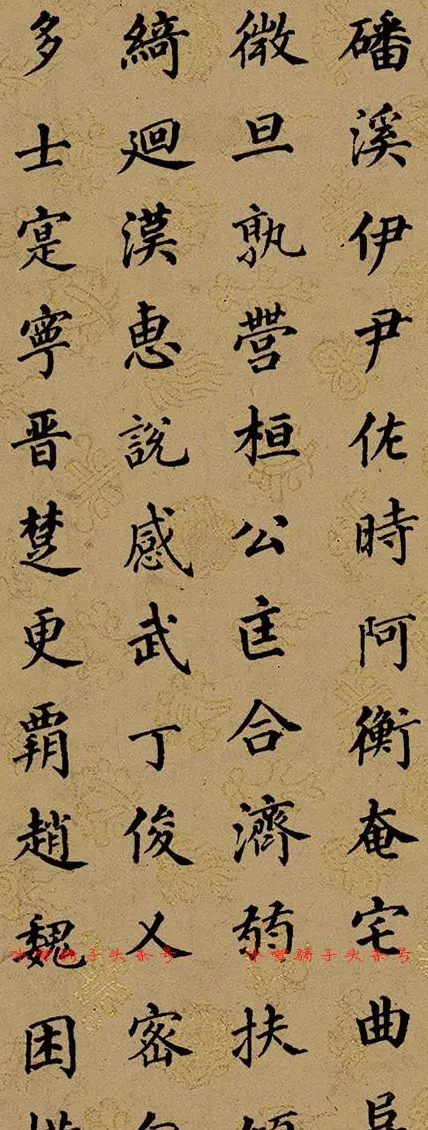 磻溪伊尹佐時阿衡奄宅曲
微旦孰營桓公匡合濟弱扶
綺迴漢惠說感武丁俊乂密
多士寔寧晋楚更霸趙魏困